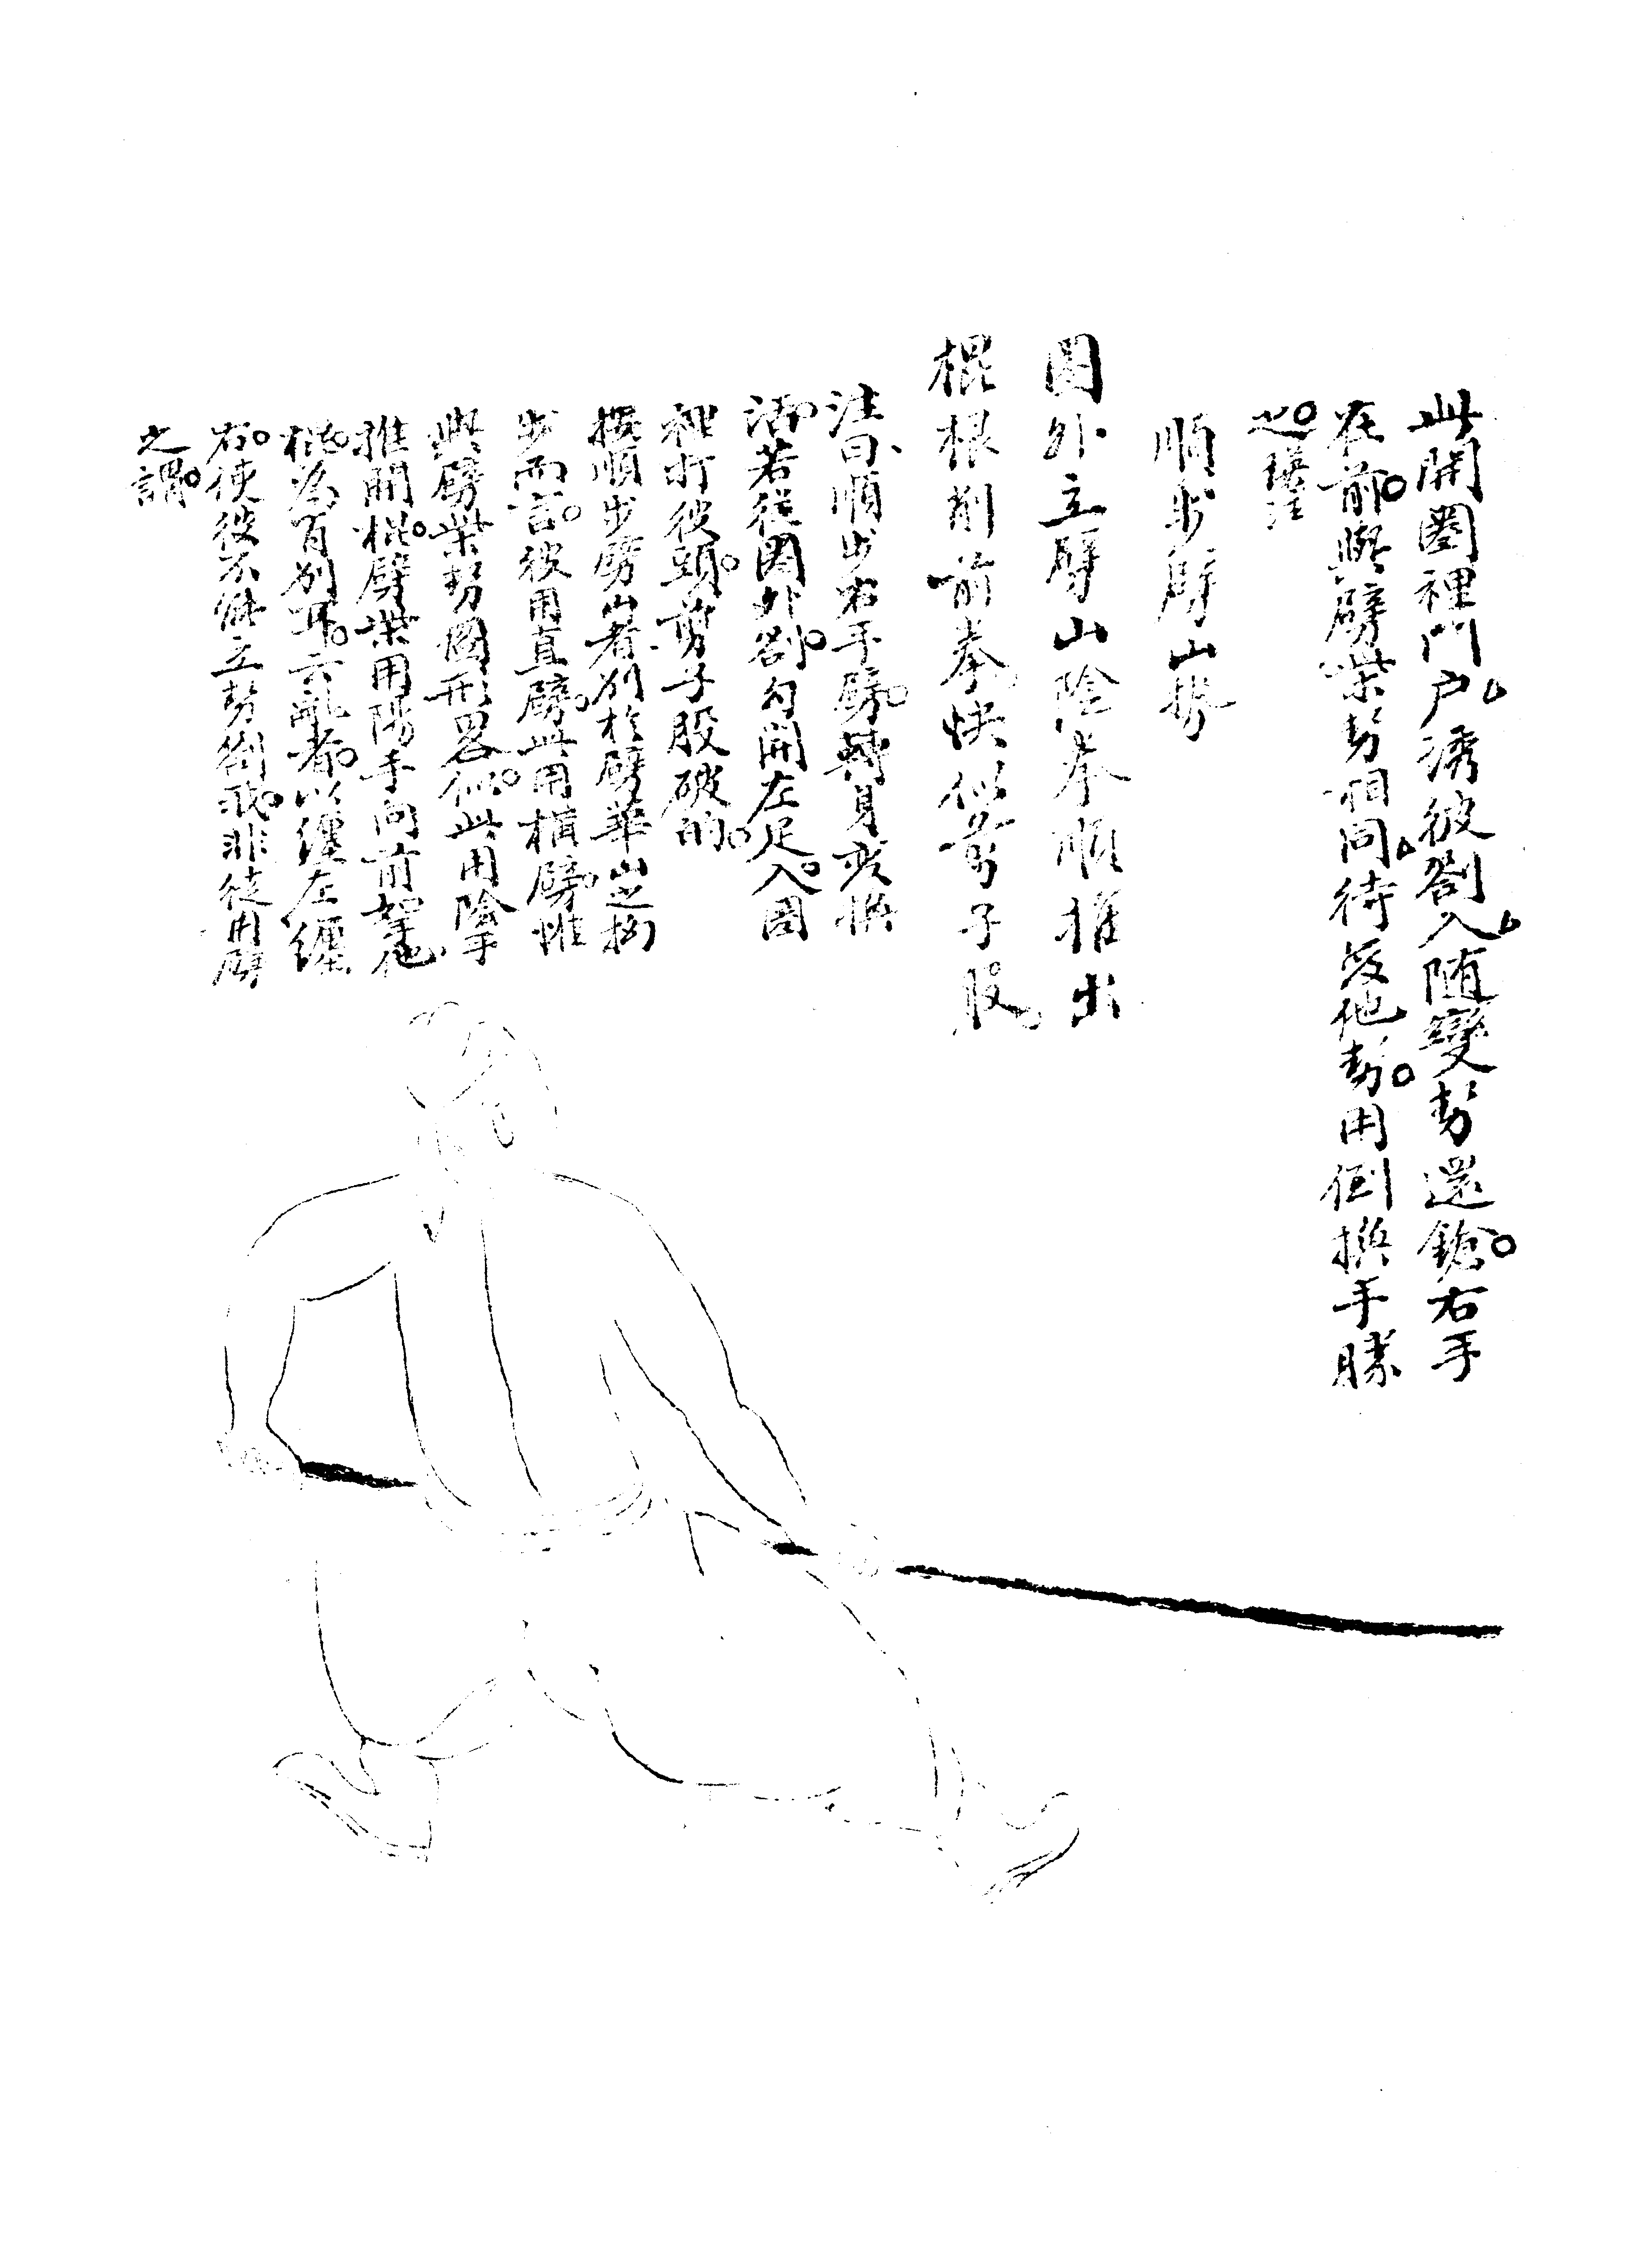 此開圈裡門户誘彼劄入随變势還鎗右手
在前與劈柴势相同待變他势用倒換手勝
之
順步劈山势
圈外立劈山陰拳順推出
棍根削前拳快似剪子股
注曰順步右手劈轉身後換
滿若從圈外劄勾開左足入圈
裡打彼頭剪子股破的
換順步劈山者别於劈華山之拗
步而言彼用直劈此用橫劈惟
與劈柴势圖形畧似此用陰手
推開棍劈柴用陽手向前挐他
棍為有别耳云亂者以纏左纏
右使彼不能立势劄我非徒用劈
之謂